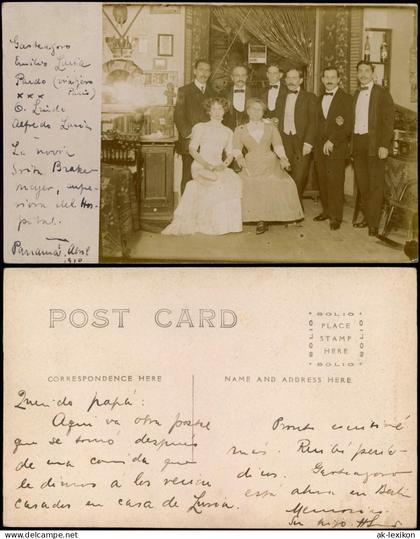 Gasteazoro
Emilio Luria
Pardo (viajero
París)
x x x
O. Linde
Alfredo Luria
La novia
Srita Brake-
meyer, supe-
visora del Hos-
pital.
Panamá, Abril
1910
POST CARD
SOLIO
PLACE
STAMP
HERE
SOLIO
CORRESPONDENCE HERE
NAME AND ADDRESS HERE
Querido papá:
Aquí va otra postal
que se tomó después
de una comida que
le dimos a los recien
casados en casa de Luria.
Pronto escribiré
más. Recibí perió-
dicos. Gasteazoro
esta ahora en
Memorias.
Su hijo
ak-lexikon